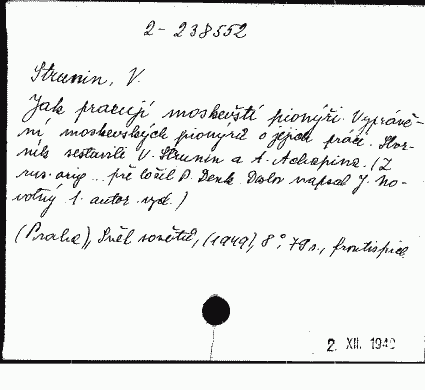 2-238552
Strunin, V.
Jak pracují moskevští pionýři. Vyprávě-
ní moskevských pionýrů o jejich práci. Sbor-
ník sestavili V. Strunin a A. Achapina. (Z
rus. orig. .. přeložil P. Denk. Doslov napsal J. No-
votný 1. autor. vyd.)
(Praha), Svět sovětů, (1949), 8°, 79 s., frontispice
2. XII. 1949